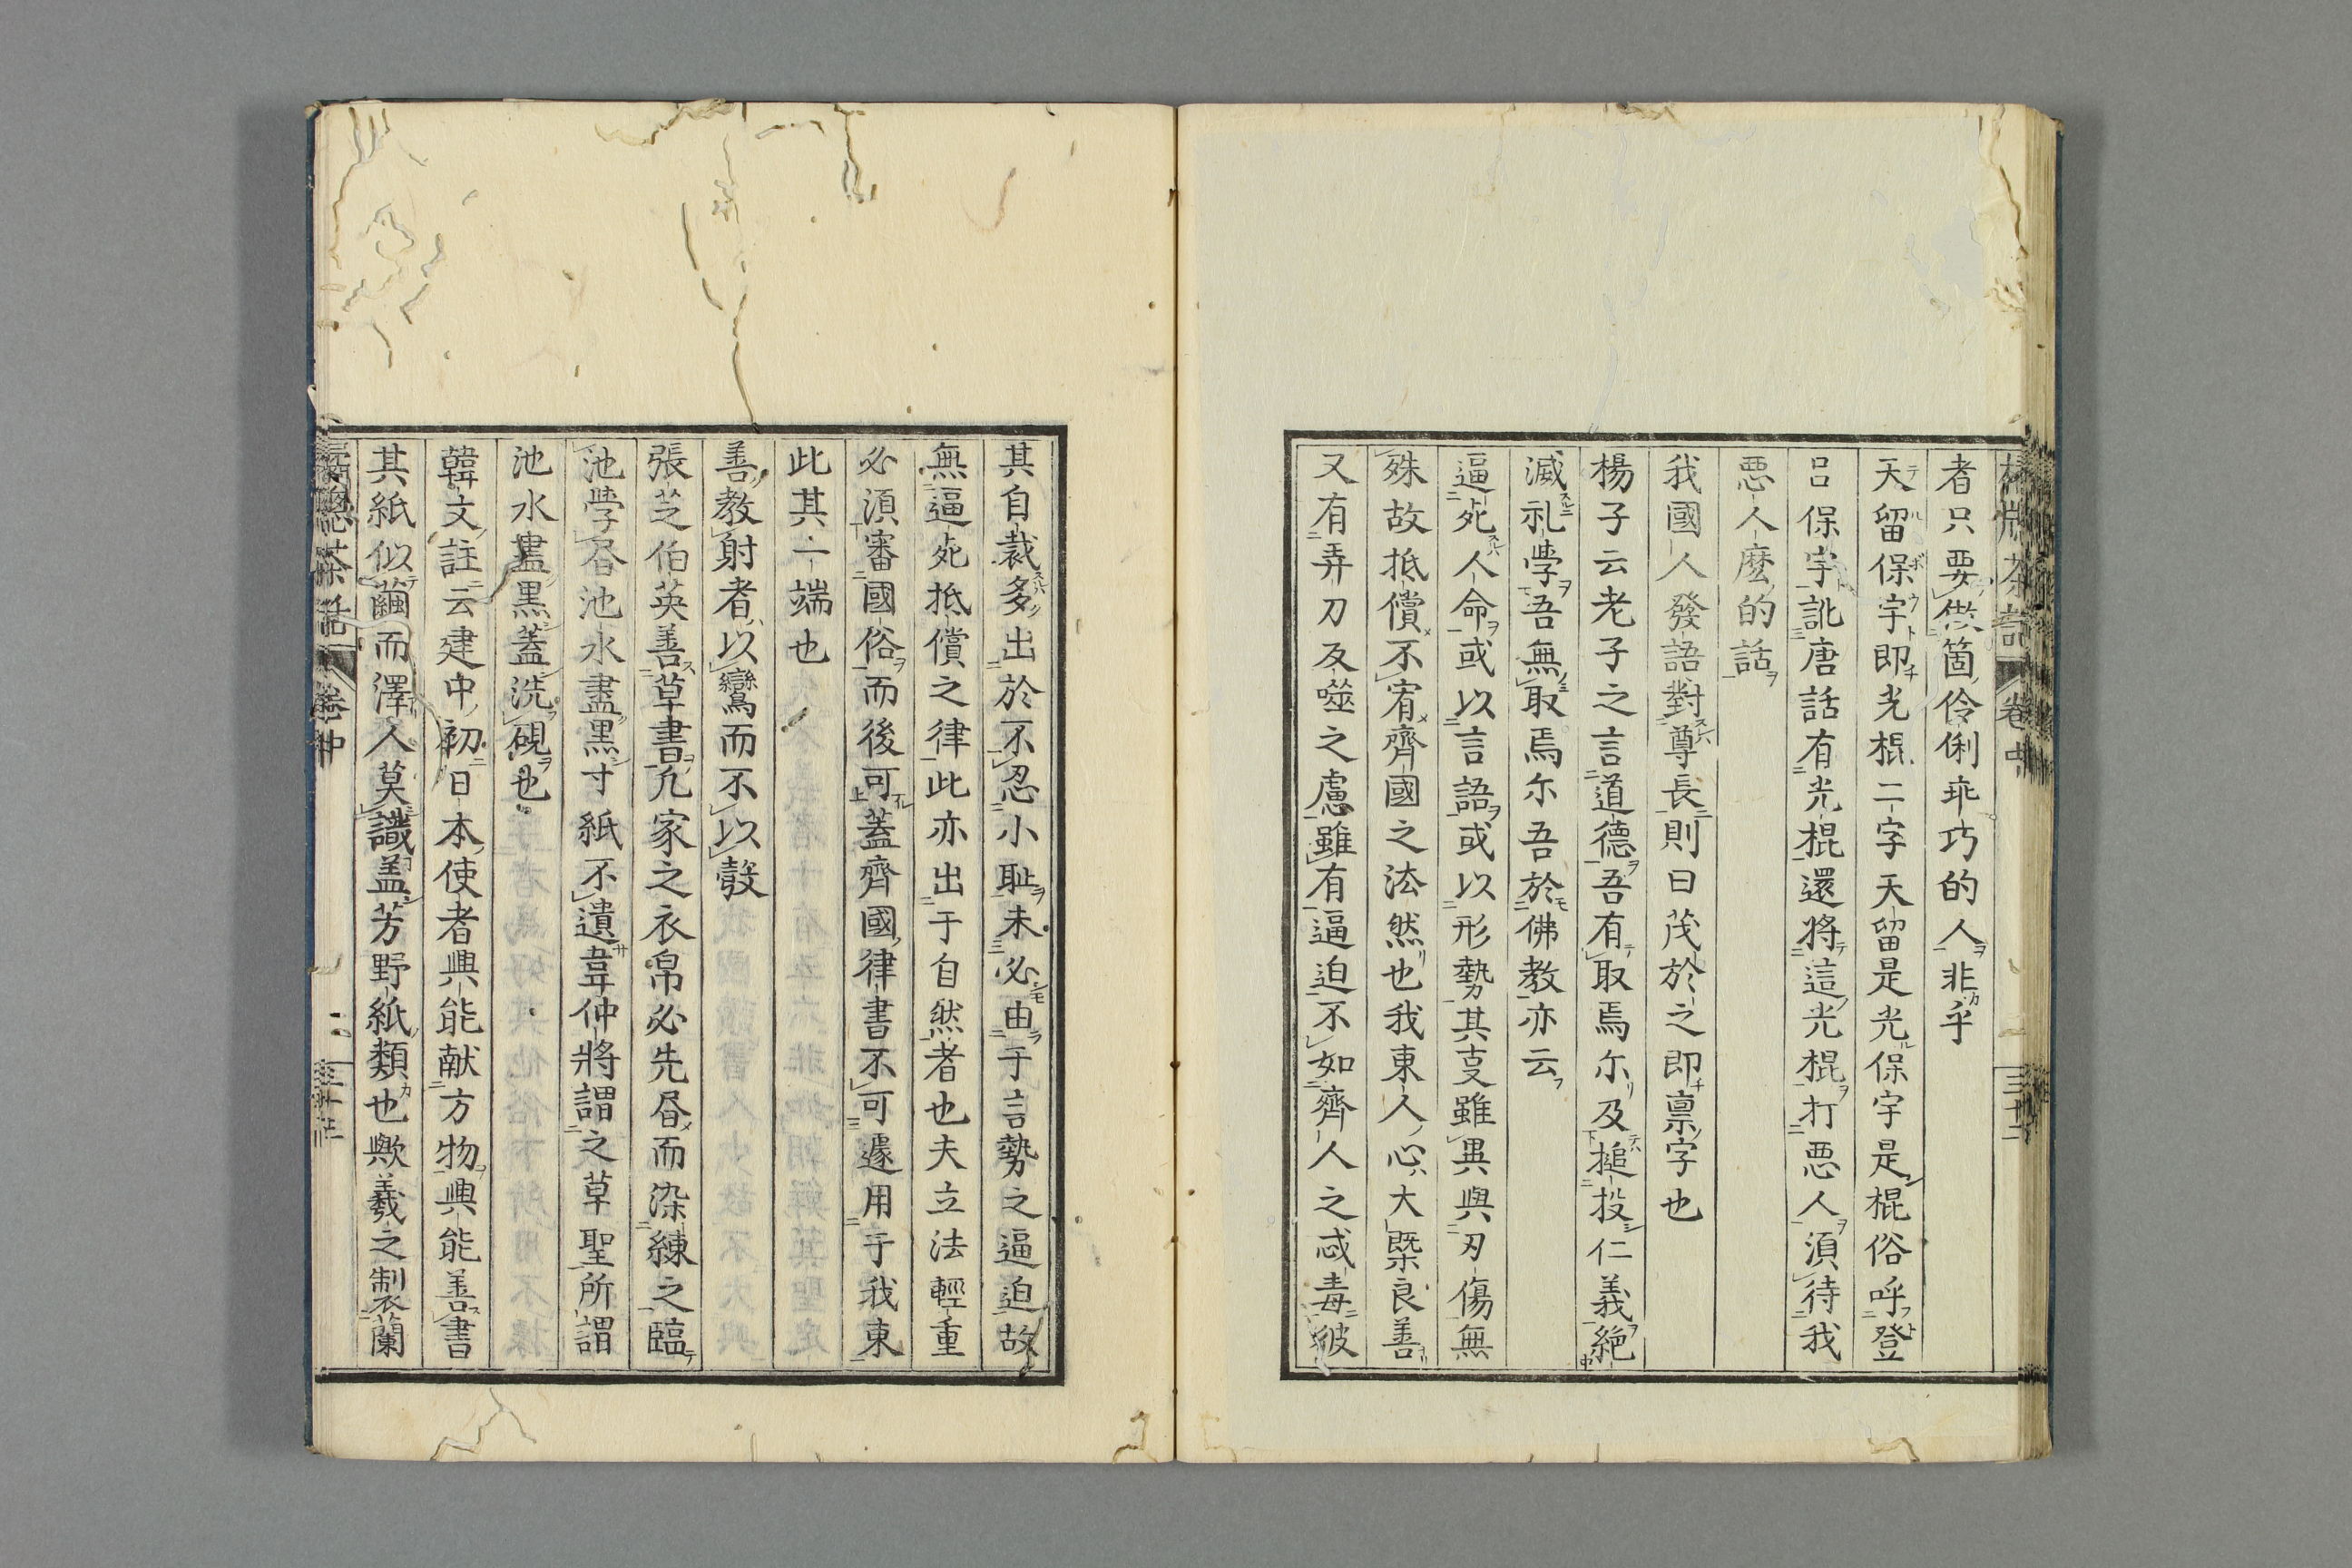 者只要供箇伶俐乖巧的人非乎
天留保宇即光棍二字天留是光保宇是棍俗呼登
呂保宇訛唐話有光棍還將這光棍打悪人湏待我
悪人麽的話
我國人發語對尊長則曰茂於之即禀字也
楊子云老子之言道德吾有取焉尓及搥投仁義絶
滅礼學吾無取焉尓吾於佛教亦云
逼死人命或以言語或以形勢其㕝雖異與刃傷無
殊故抵償不宥齊國之法然也我東人心大槩良善
又有弄刀反噬之慮雖有逼迫不如齊人之忒毒彼
其自裁多出於不忍小耻未必由于言勢之逼迫故
無逼死抵償之律此亦出于自然者也夫立法輕重
必湏審國俗而後可蓋齊國律書不可遽用于我東
此其一端也
善教射者以鸞而不以彀
張芝伯英善草書凢家之衣帛必先昬而染練之臨
池學昬池水盡黒寸紙不遺韋仲將謂之草聖所謂
池水盡黒蓋洗硯也
韓文註云建中初日本使者興能献方物興能善書
其紙似繭而澤人莫識盖芳野紙類也歟羲之製蘭
茶話 卷中